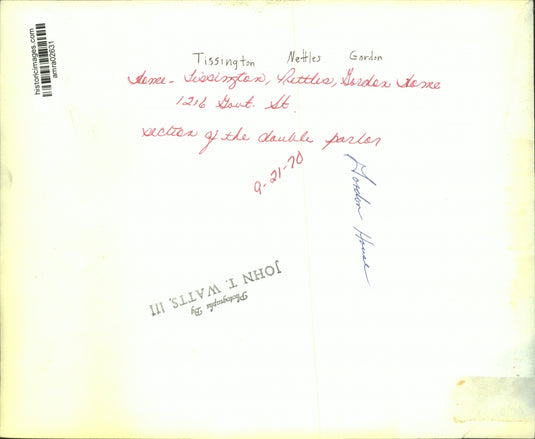 historicimages.com
Tissington Nettles Gordon
Home - Tissington, Nettles, Gordon Home
1216 Govt. St.
section of the double parlor
9-21-70
Gordon House
Photographs By
JOHN T. WATTS, III